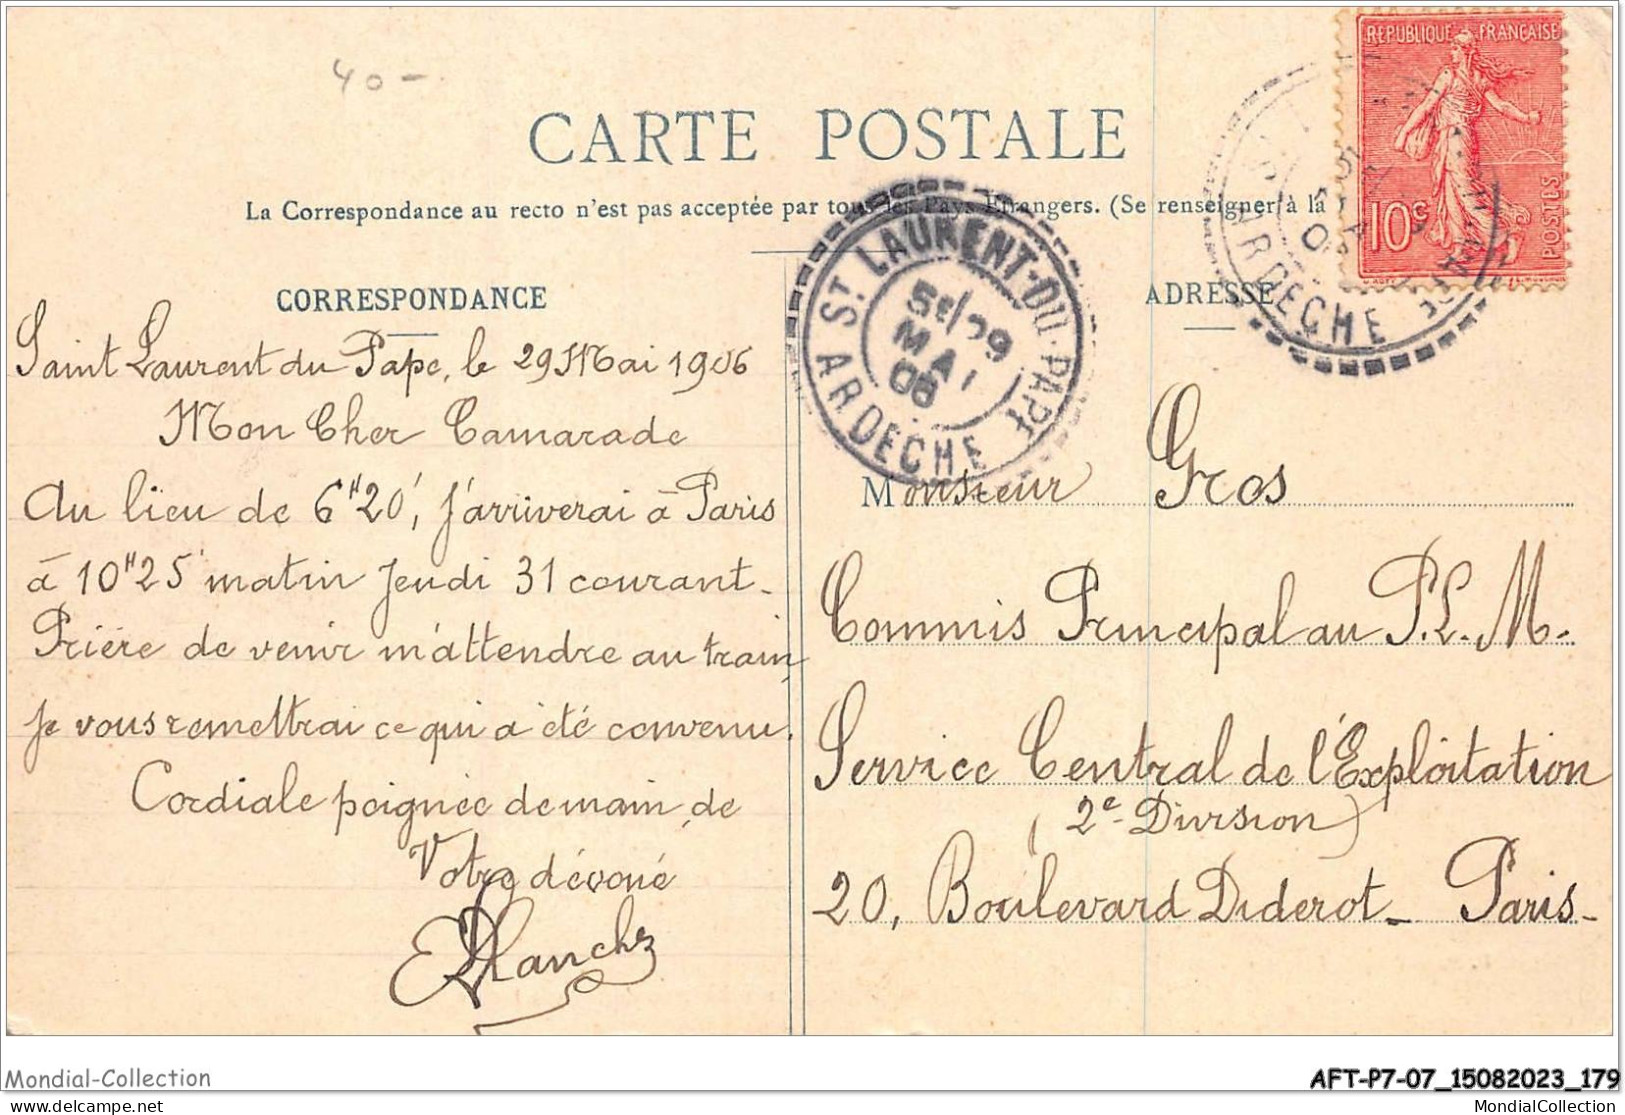 40-
CARTE POSTALE
La Correspondance au recto n'est pas acceptée par tous les Pays Etrangers. (Se renseigner à la
CORRESPONDANCE
Saint Laurent du Pape, le 29 Mai 1906
Mon Cher Camarade
Au lieu de 6H20', j'arriverai à Paris
à 10H25' matin Jeudi 31 courant.
Prière de venir m'attendre au train,
je vous remettrai ce qui a été convenu.
Cordiale poignée de main, de
Votre dévoué
Planche
ST LAURENT-DU-PAPE
5E/29
MAI
06
ARDECHE
REPUBLIQUE FRANÇAISE
10c
POSTES
ARDECHE
ADRESSE
Monsieur Gros
Commis Principal au P.L.M.
Service Central de l'Exploitation
(2e Division)
20, Boulevard Diderot - Paris -
Mondial-Collection
AFT-P7-07_15082023_179
delcampe.net
MondialCollection